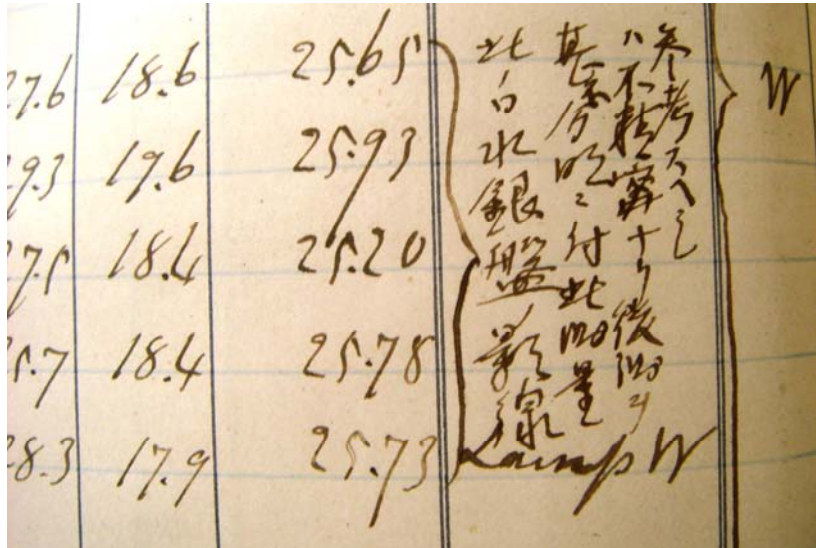 27.6 18.6 25.65
9.3 19.6 25.93
7.5 18.4 25.20
5.7 18.4 25.78
8.3 17.9 25.73
此日水銀盤影線
甚不分明ニ付此測量
ハ不精密ナリ後測ヲ
参考スヘシ
Lamp W
W